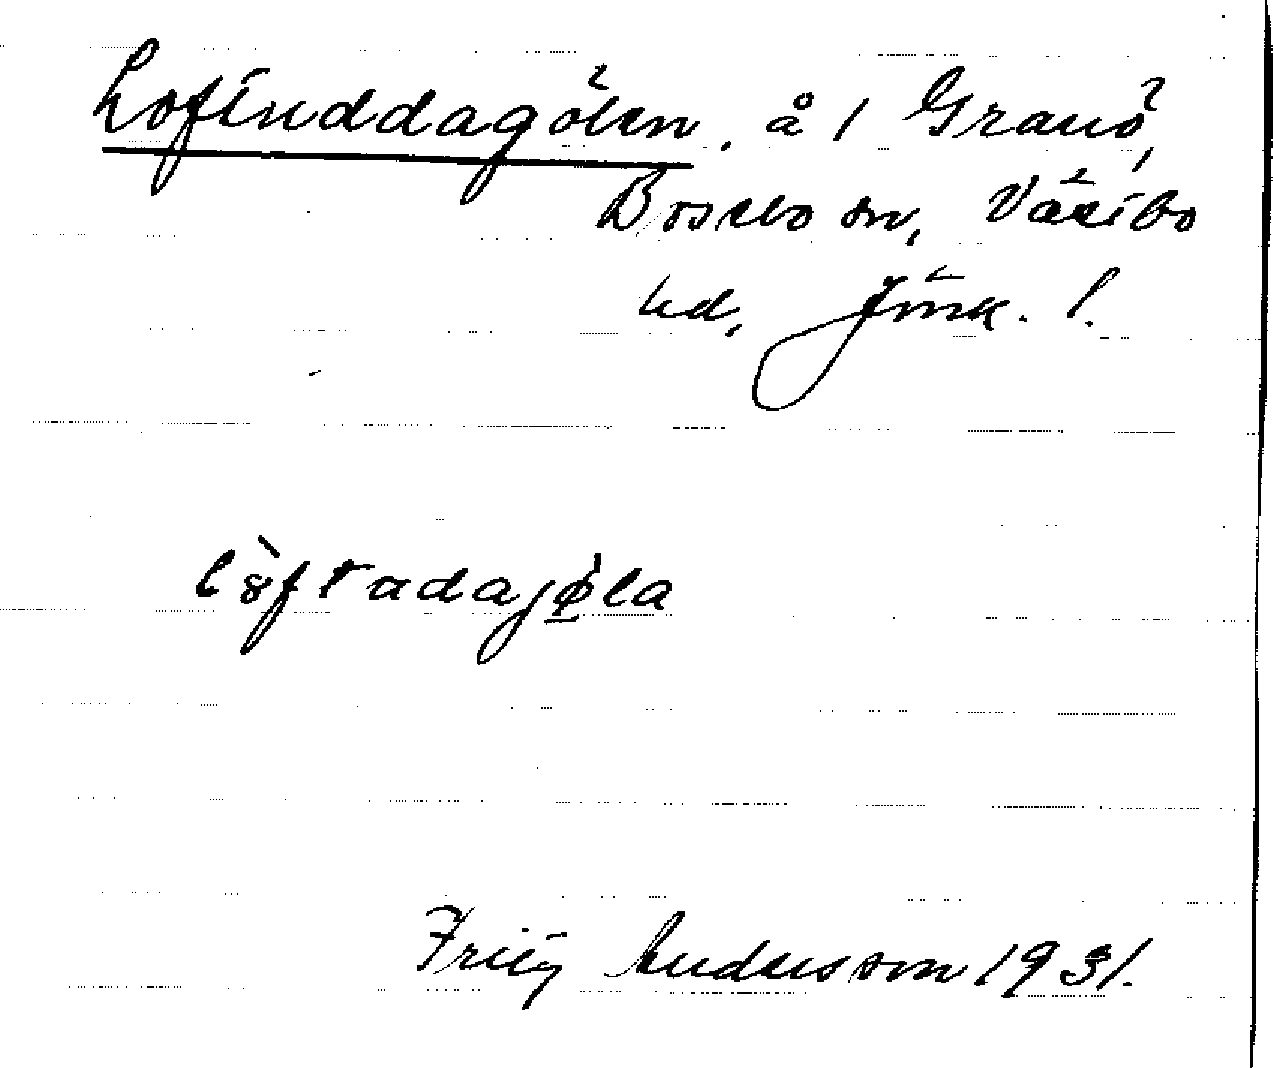 Loftuddagölen. å 1 Granö,
Bosebo sn, Västbo
hd, Jönk. l.
lòftadagøla
Fritz Andersson 1931.